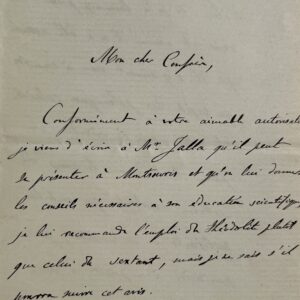 Mon cher Confrère,
Conformément à votre aimable autorisati
je viens d'écrire à Mr. Jalla qu'il peut
se présenter à Montsouris et qu'on lui donnera
les conseils nécessaires à son éducation scientifique,
je lui recommande l'emploi du théodolite plutôt
que celui du sextant, mais je ne sais s'il
pourra suivre cet avis.